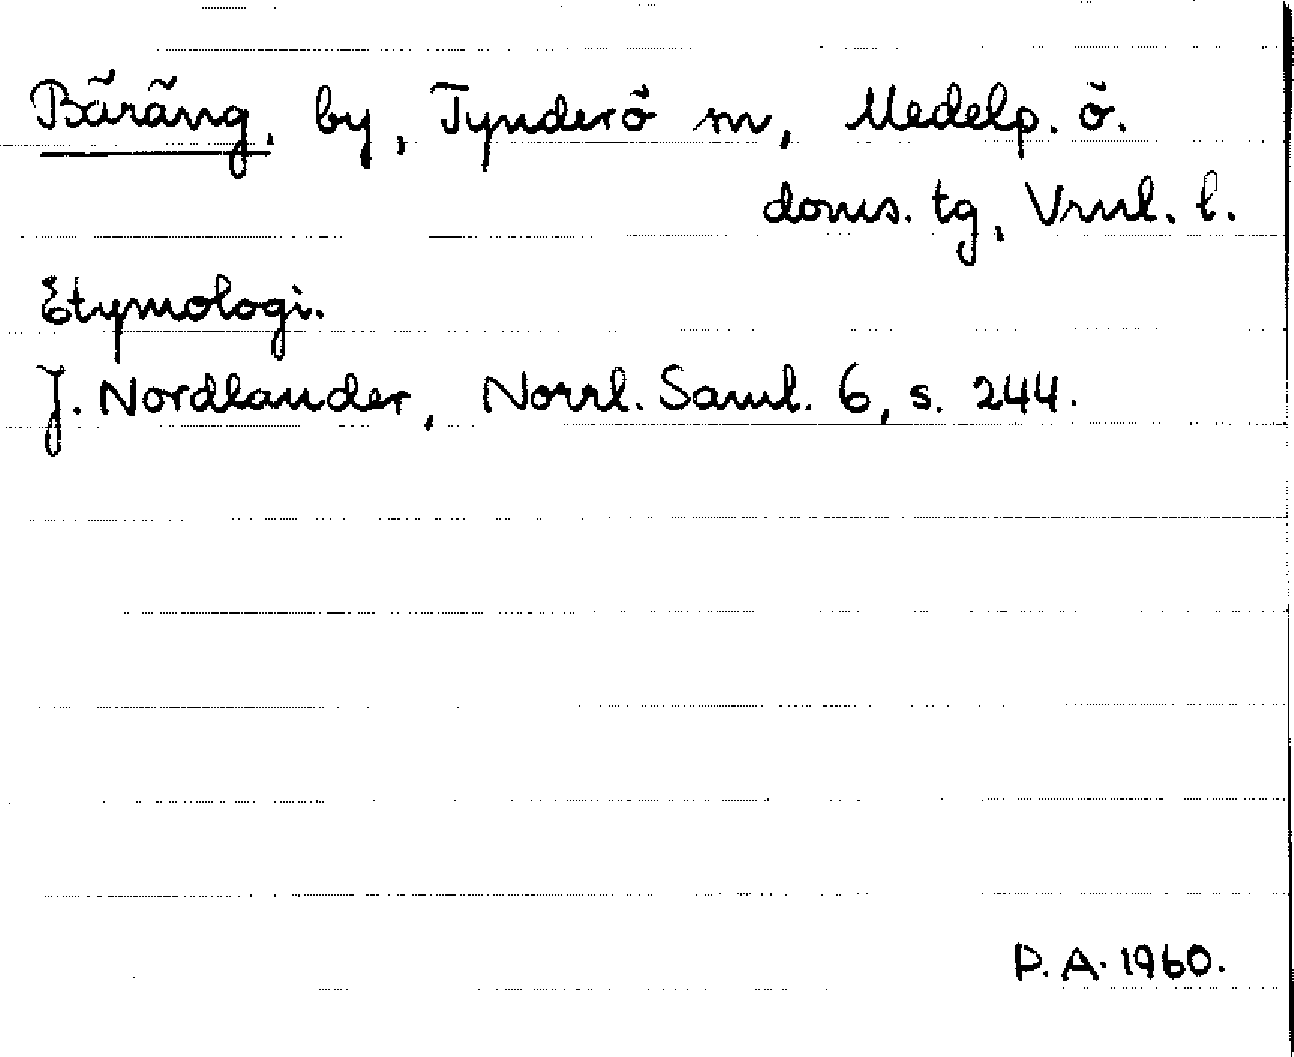 Bäräng, by, Tynderö sn, Medelp. ö.
doms. tg, Vrnl. l.
Etymologi.
J. Nordlander, Norrl. Saml. 6, s. 244.
P. A. 1960.